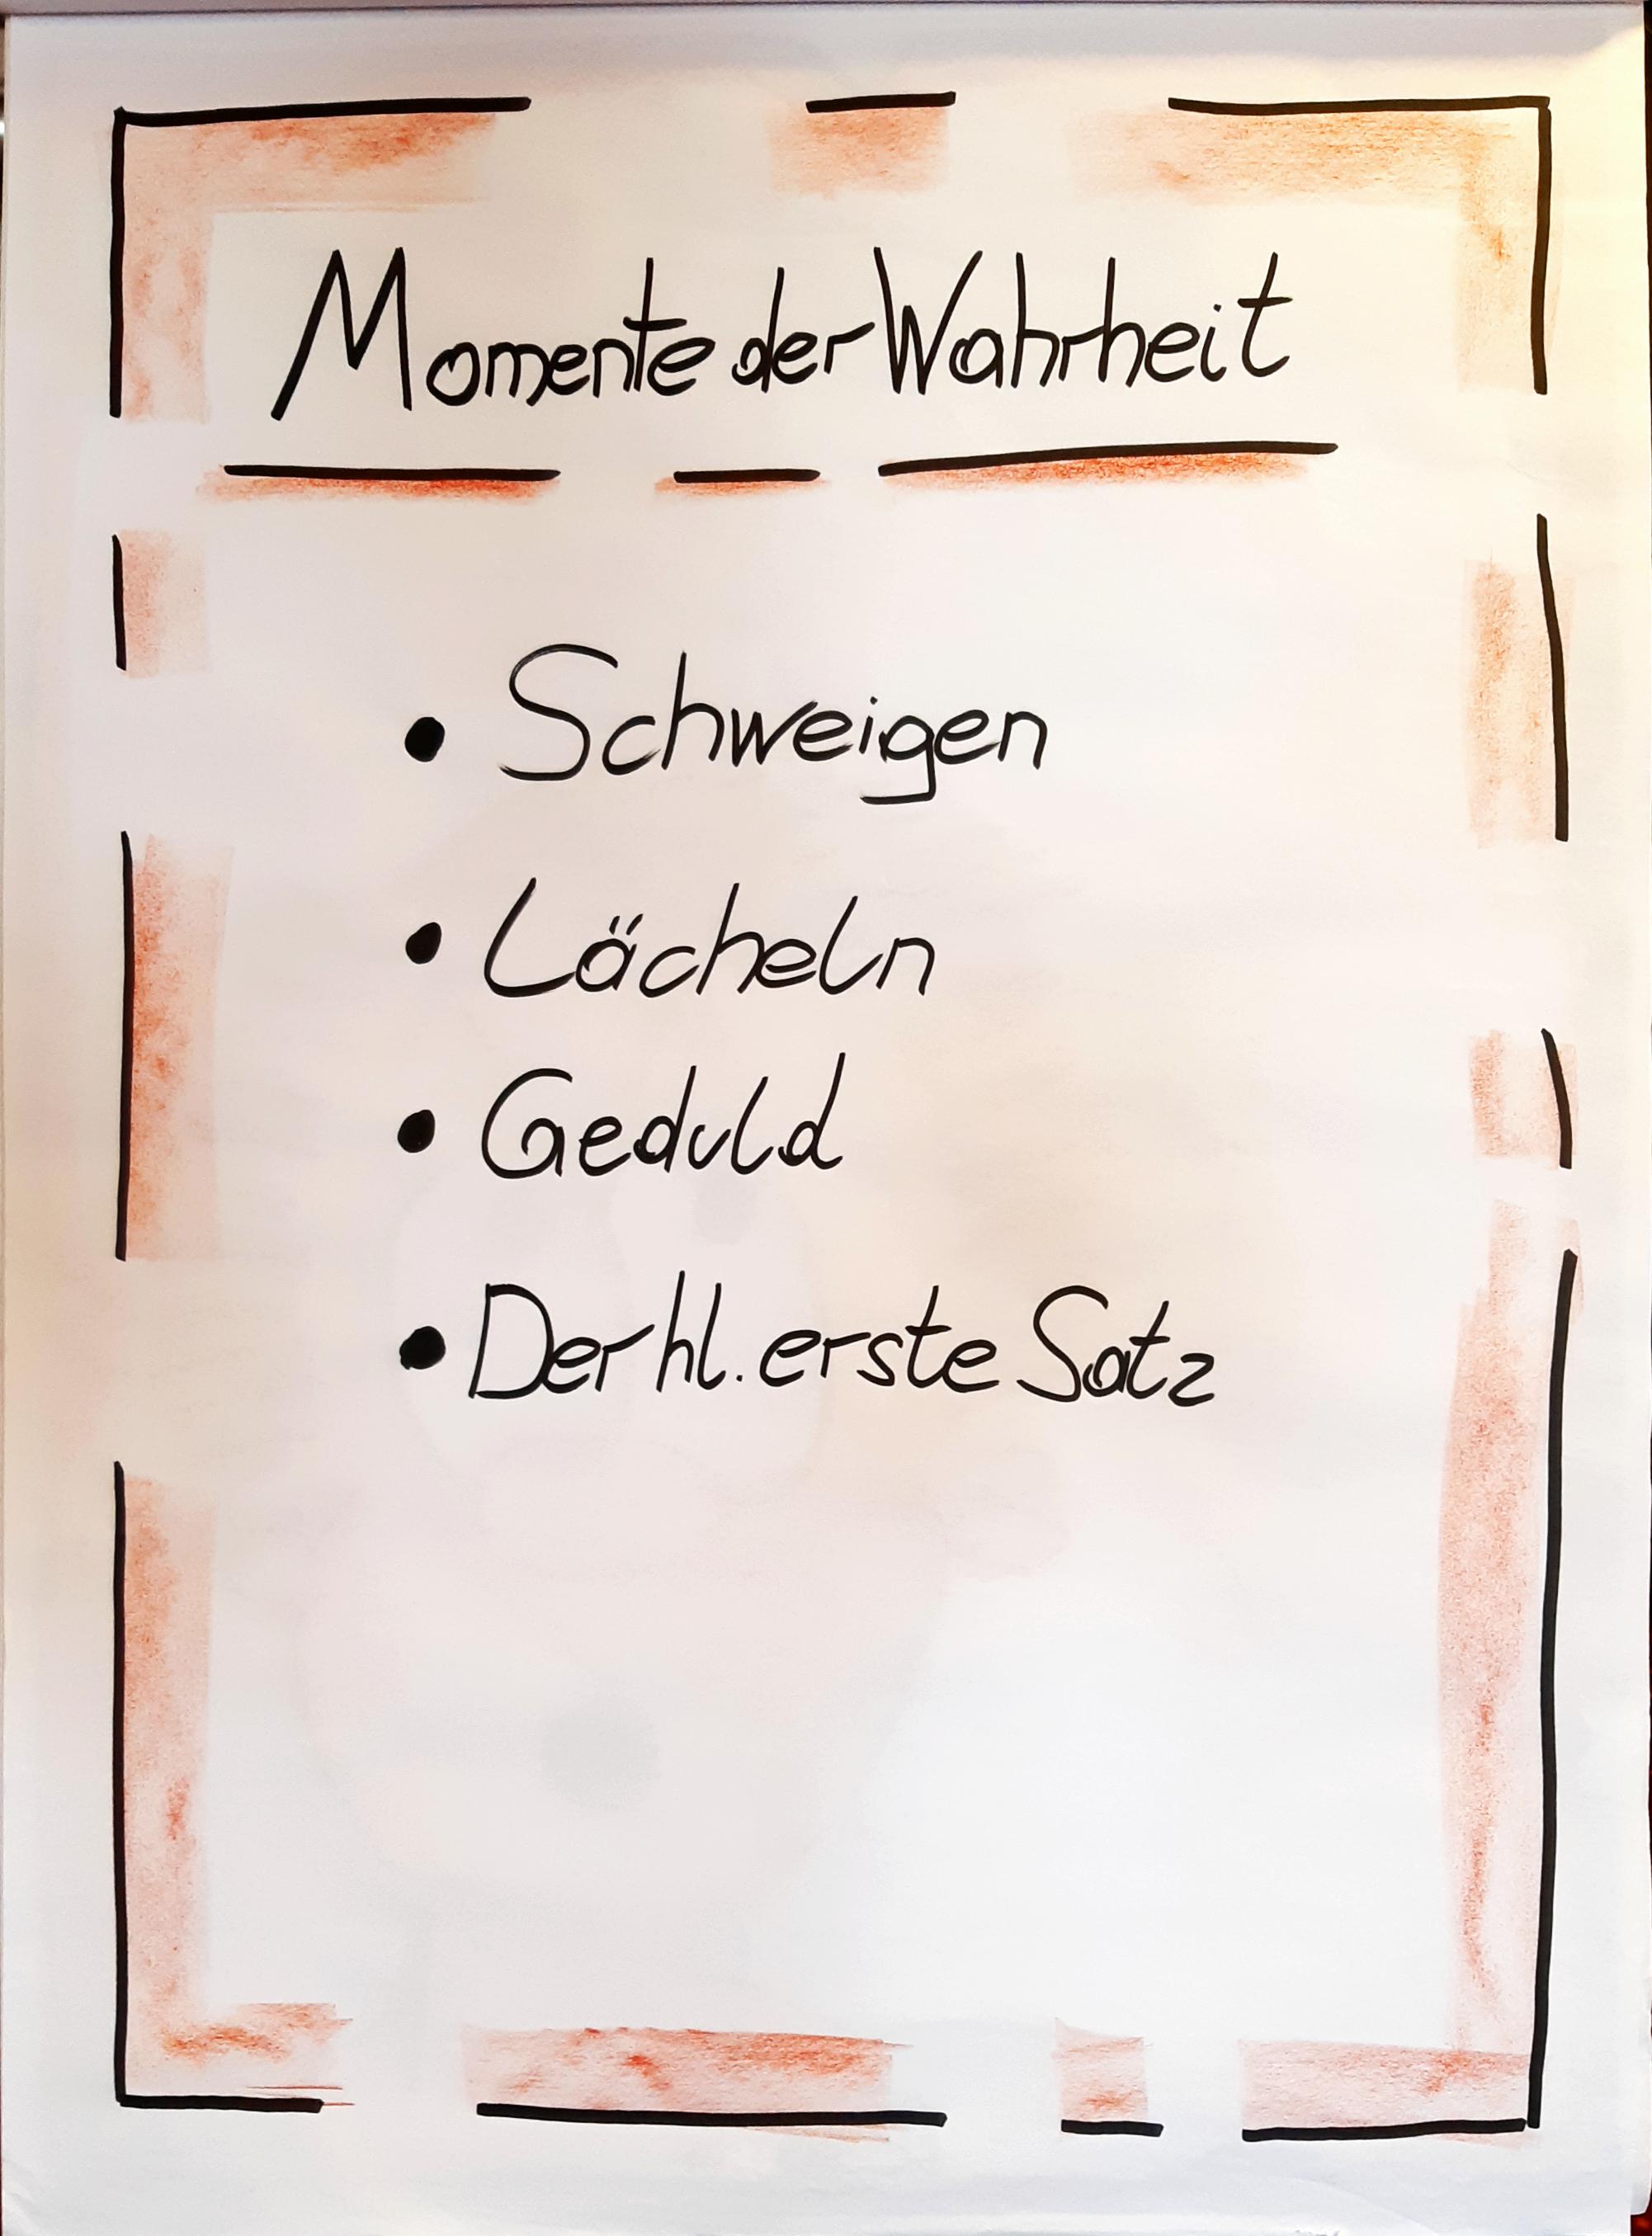 Momente der Wahrheit
• Schweigen
• Lächeln
• Geduld
• Der hl. erste Satz